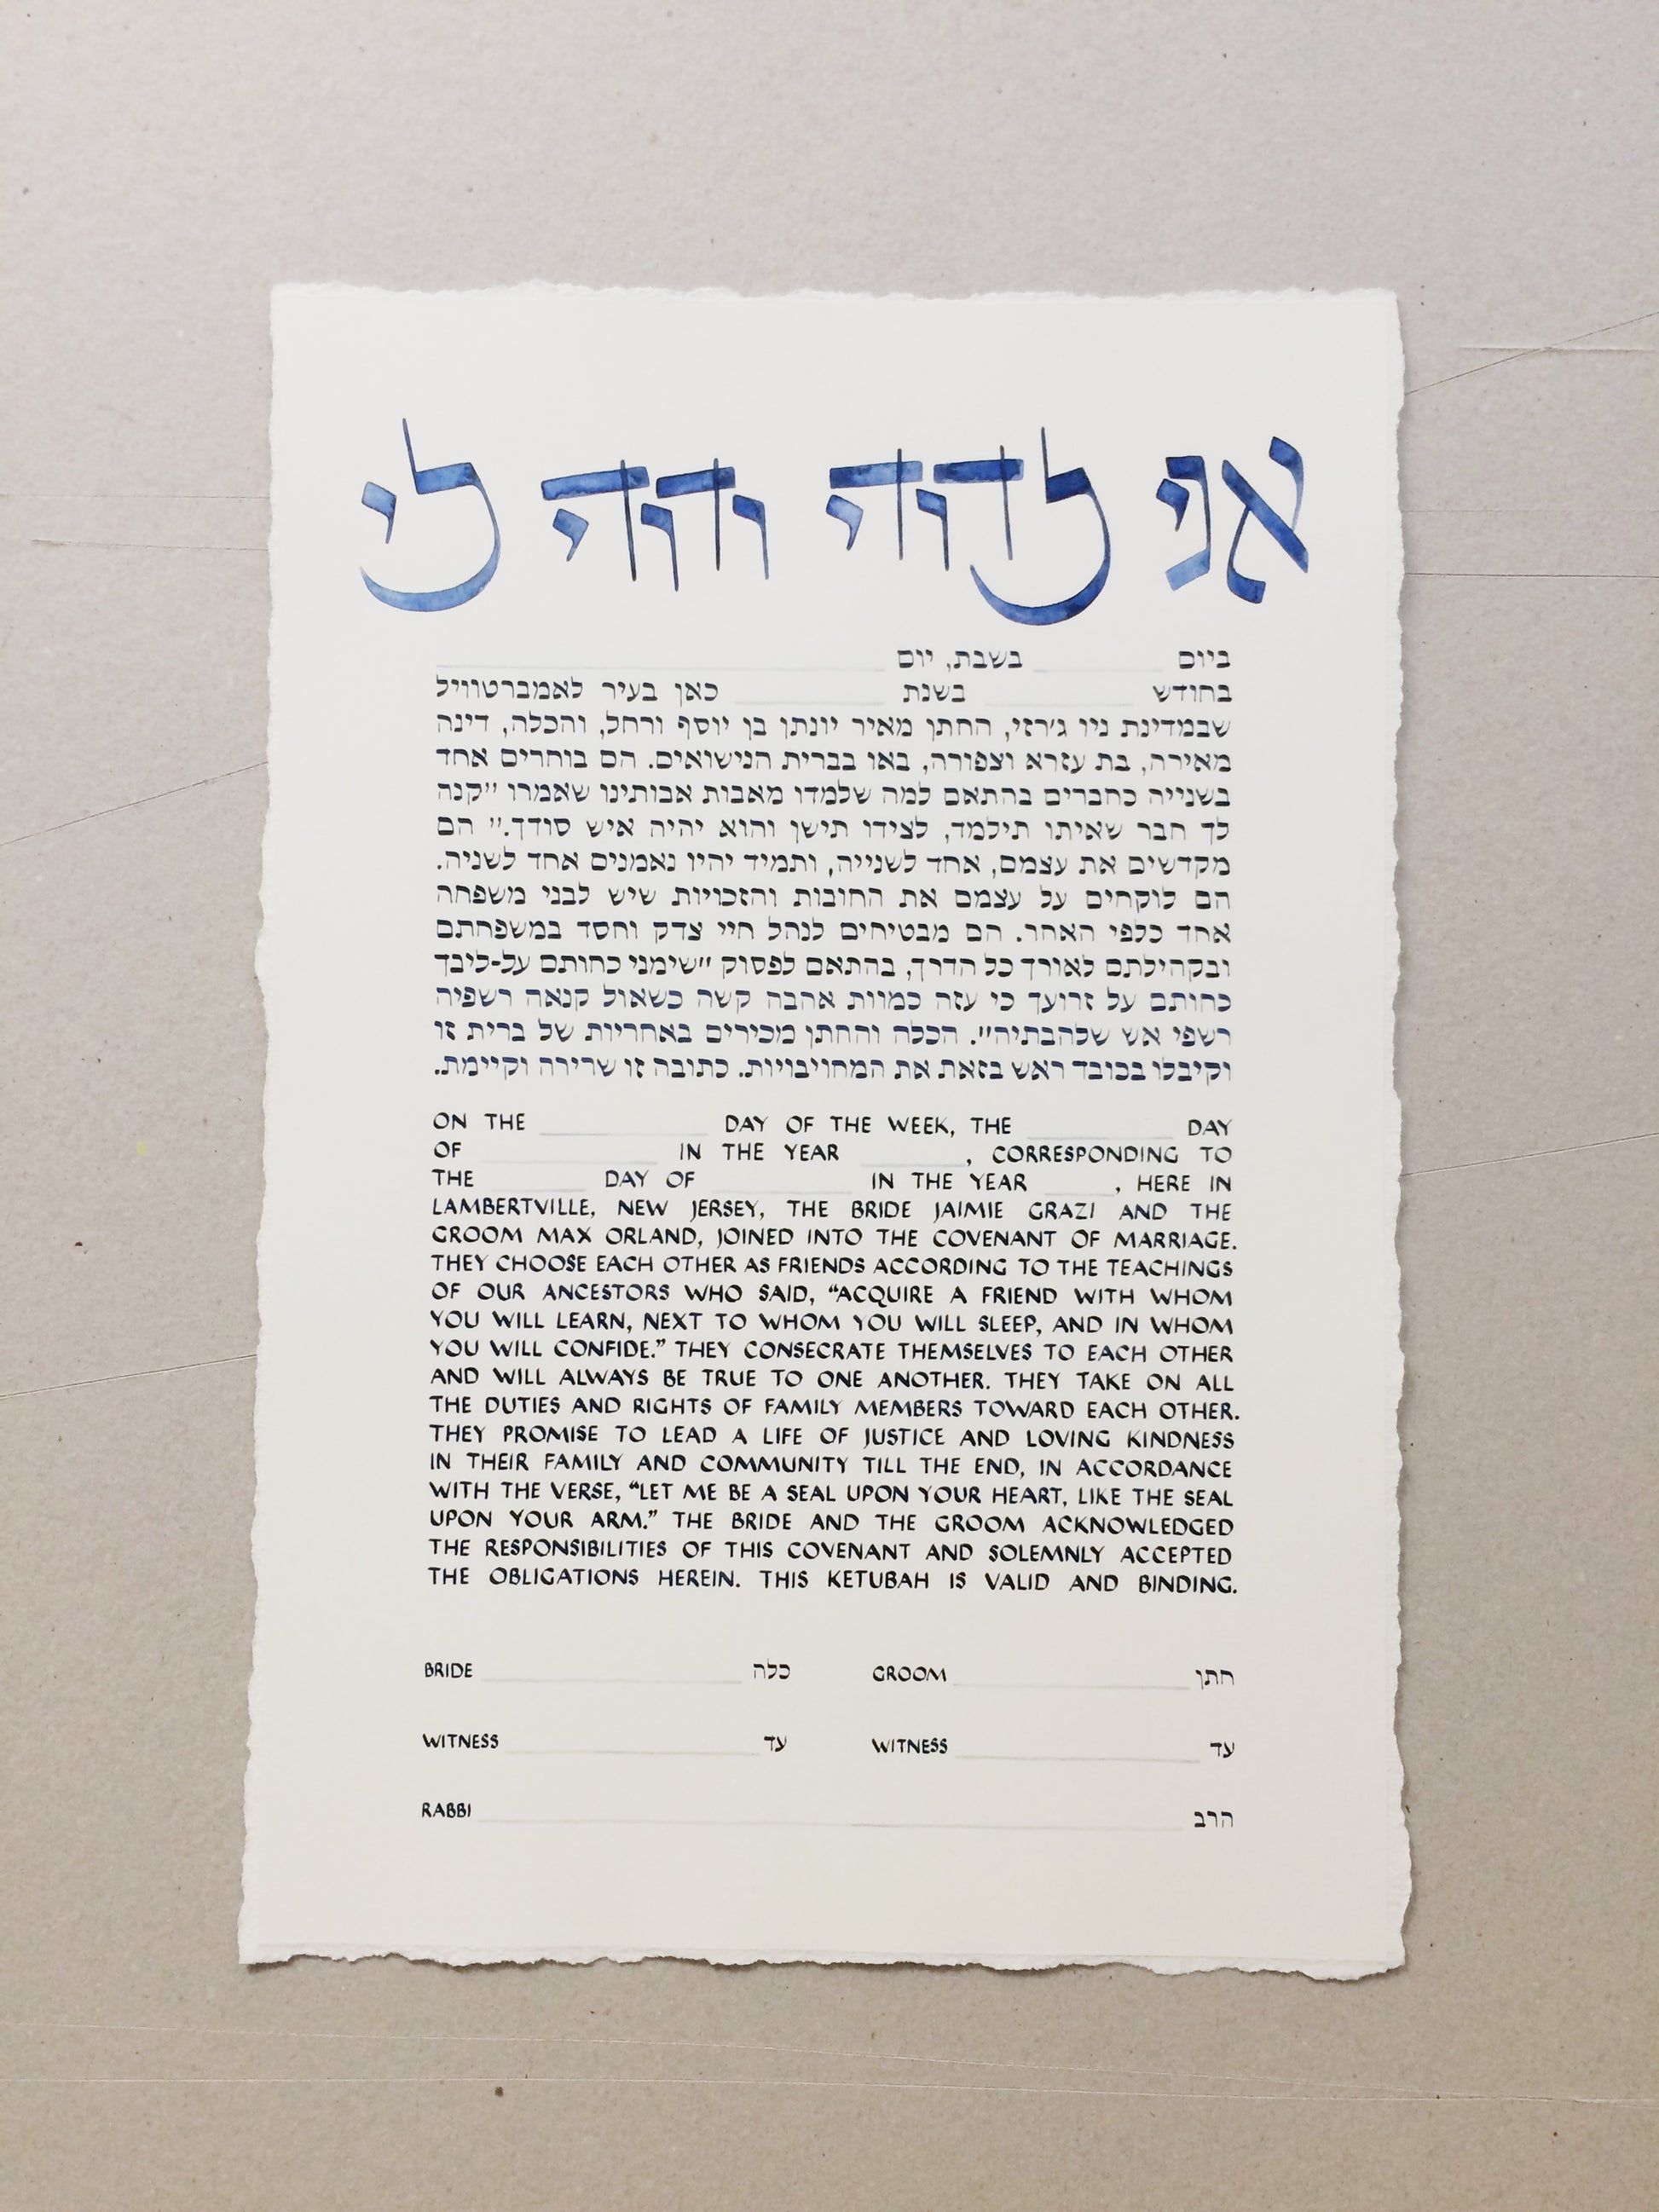 אני לדודי ודודי לי
ביום בשבת, יום
בחודש בשנת כאן בעיר לאמברטוויל
שבמדינת ניו ג׳רזי, החתן מאיר יונתן בן יוסף ורחל, והכלה, דינה
מאירה, בת עזרא וצפורה, באו בברית הנישואים. הם בוחרים אחד
בשנייה כחברים בהתאם למה שלמדו מאבות אבותינו שאמרו ״קנה
לך חבר שאיתו תילמד, לצידו תישן והוא יהיה איש סודך.״ הם
מקדשים את עצמם, אחד לשנייה, ותמיד יהיו נאמנים אחד לשניה.
הם לוקחים על עצמם את החובות והזכויות שיש לבני משפחה
אחד כלפי האחר. הם מבטיחים לנהל חיי צדק וחסד במשפחתם
ובקהילתם לאורך כל הדרך, בהתאם לפסוק ״שימני כחותם על-ליבך
כחותם על זרועך כי עזה כמוות אהבה קשה כשאול קנאה רשפיה
רשפי אש שלהבתיה״. הכלה והחתן מכירים באחריות של ברית זו
וקיבלו בכובד ראש בזאת את המחויבויות. כתובה זו שרירה וקיימת.
ON THE DAY OF THE WEEK, THE DAY
OF IN THE YEAR , CORRESPONDING TO
THE DAY OF IN THE YEAR , HERE IN
LAMBERTVILLE, NEW JERSEY, THE BRIDE JAIMIE GRAZI AND THE
GROOM MAX ORLAND, JOINED INTO THE COVENANT OF MARRIAGE.
THEY CHOOSE EACH OTHER AS FRIENDS ACCORDING TO THE TEACHINGS
OF OUR ANCESTORS WHO SAID, “ACQUIRE A FRIEND WITH WHOM
YOU WILL LEARN, NEXT TO WHOM YOU WILL SLEEP, AND IN WHOM
YOU WILL CONFIDE.” THEY CONSECRATE THEMSELVES TO EACH OTHER
AND WILL ALWAYS BE TRUE TO ONE ANOTHER. THEY TAKE ON ALL
THE DUTIES AND RIGHTS OF FAMILY MEMBERS TOWARD EACH OTHER.
THEY PROMISE TO LEAD A LIFE OF JUSTICE AND LOVING KINDNESS
IN THEIR FAMILY AND COMMUNITY TILL THE END, IN ACCORDANCE
WITH THE VERSE, “LET ME BE A SEAL UPON YOUR HEART, LIKE THE SEAL
UPON YOUR ARM.” THE BRIDE AND THE GROOM ACKNOWLEDGED
THE RESPONSIBILITIES OF THIS COVENANT AND SOLEMNLY ACCEPTED
THE OBLIGATIONS HEREIN. THIS KETUBAH IS VALID AND BINDING.
BRIDE כלה GROOM חתן
WITNESS עד WITNESS עד
RABBI הרב